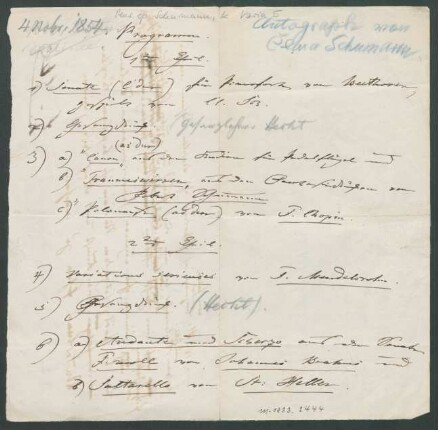 4 Nobr. 1854.
Autograph von
Clara Schumann.
Programm.
1ter Theil.
1) Sonate (C dur) für Pianoforte von Beethoven,
gespielt von Cl. Sch.
2) Gesangstück. Hecht
(as dur)
3) a) Canon, aus den Studien für Pedalflügel und
b) Traumeswirren, aus den Phantasiestücken von
Robert Schumann
c) Polonaise (as dur) von F. Chopin.
2ter Theil.
4) Variations serieuses von F. Mendelssohn.
5) Gesangstück. (Hecht).
6) a) Andante und Scherzo aus der Sonate
F moll von Johannes Brahms und
b) Saltarello von St. Heller.
1444